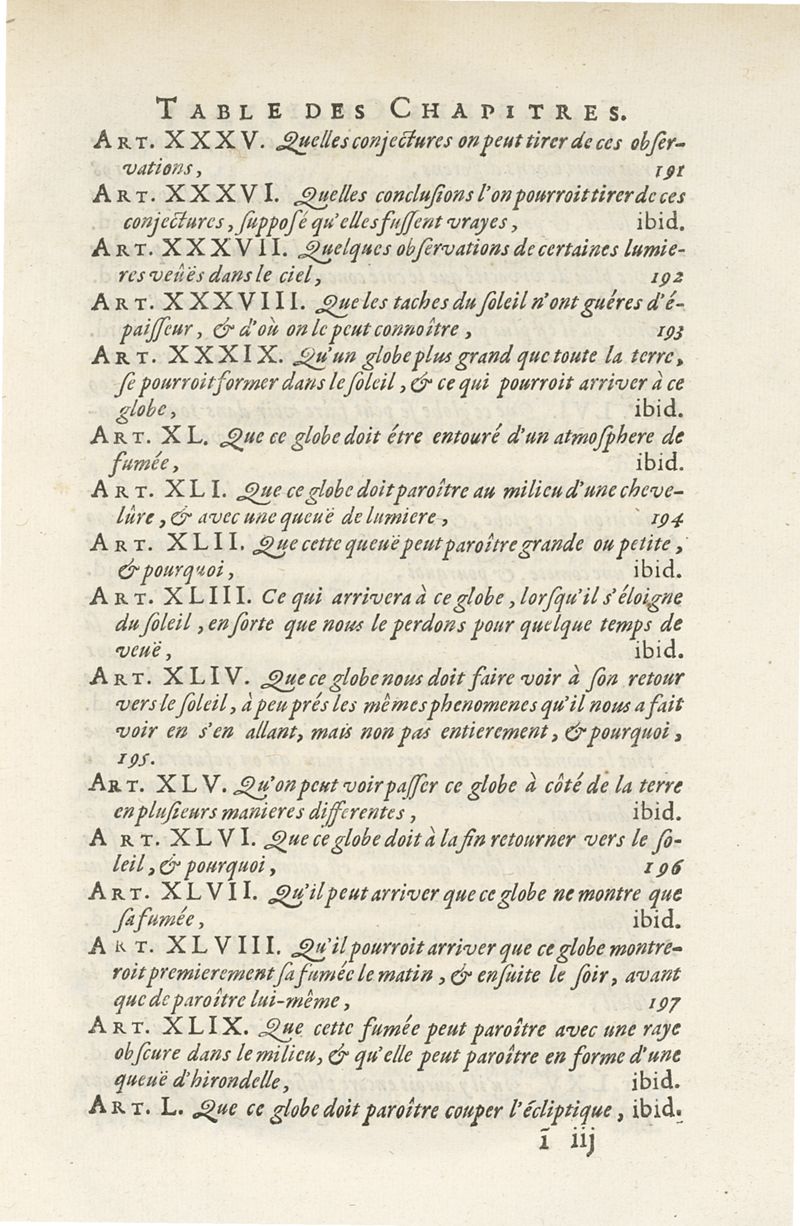 TABLE DES CHAPITRES.
ART. XXXV. Quelles conjectures on peut tirer de ces obſer-
vations, 191
ART. XXXVI. Quelles concluſions l'on pourroit tirer de ces
conjectures, ſuppoſé qu'elles fuſſent vrayes, ibid.
ART. XXXVII. Quelques obſervations de certaines lumie-
res veûës dans le ciel, 192
ART. XXXVIII. Que les taches du ſoleil n'ont guéres d'é-
paiſſeur, & d'où on le peut connoître, 193
ART. XXXIX. Qu'un globe plus grand que toute la terre,
ſe pourroit former dans le ſoleil, & ce qui pourroit arriver à ce
globe, ibid.
ART. XL. Que ce globe doit étre entouré d'un atmoſphere de
fumée, ibid.
ART. XLI. Que ce globe doit paroître au milieu d'une cheve-
lûre, & avec une queuë de lumiere, 194
ART. XLII. Que cette queuë peut paroître grande ou petite,
& pourquoi, ibid.
ART. XLIII. Ce qui arrivera à ce globe, lorſqu'il s'éloigne
du ſoleil, en ſorte que nous le perdons pour quelque temps de
veuë, ibid.
ART. XLIV. Que ce globe nous doit faire voir à ſon retour
vers le ſoleil, à peu prés les mêmes phenomenes qu'il nous a fait
voir en s'en allant, mais non pas entierement, & pourquoi,
195.
ART. XLV. Qu'on peut voir paſſer ce globe à côté de la terre
en pluſieurs manieres differentes, ibid.
ART. XLVI. Que ce globe doit à la fin retourner vers le ſo-
leil, & pourquoi, 196
ART. XLVII. Qu'il peut arriver que ce globe ne montre que
ſa fumée, ibid.
ART. XLVIII. Qu'il pourroit arriver que ce globe montre-
roit premierement ſa fumée le matin, & enſuite le ſoir, avant
que de paroître lui-même, 197
ART. XLIX. Que cette fumée peut paroître avec une raye
obſcure dans le milieu, & qu'elle peut paroître en forme d'une
queuë d'hirondelle, ibid.
ART. L. Que ce globe doit paroître couper l'écliptique, ibid.
ĩ iij